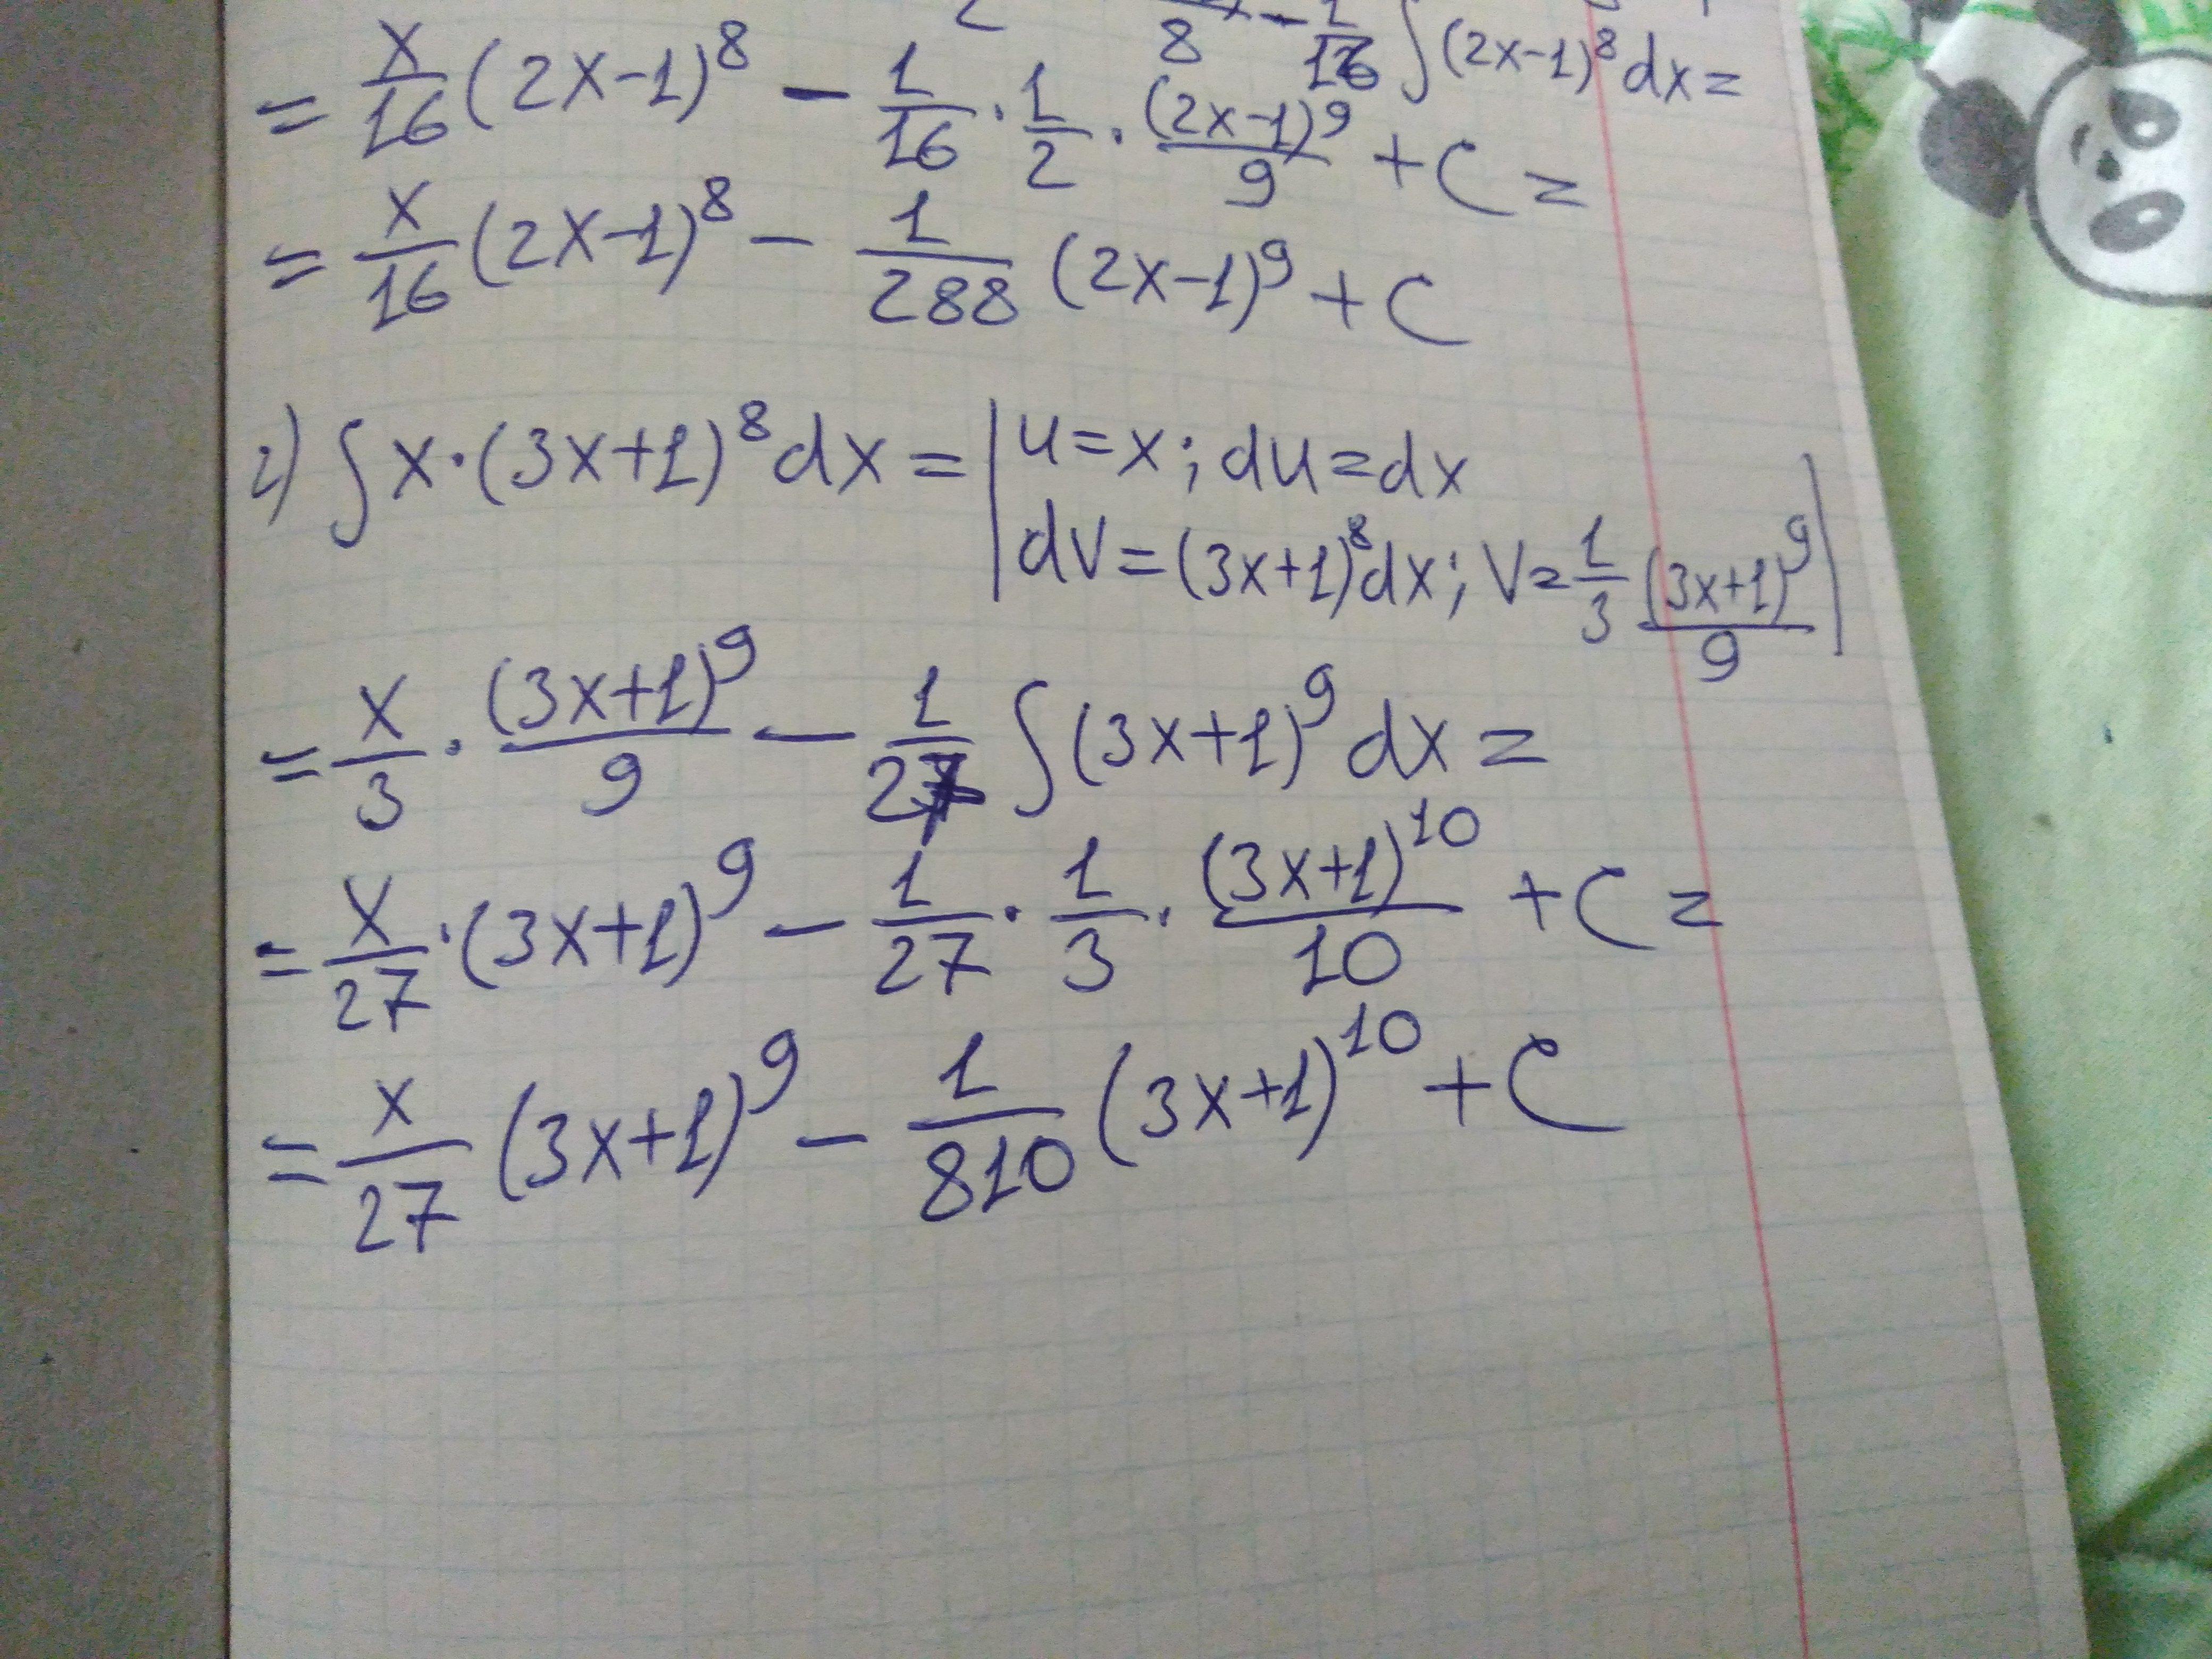 − 1/16 ∫(2x−1)⁸dx =
= x/16 (2x−1)⁸ − 1/16 · 1/2 · (2x−1)⁹/9 + C =
= x/16 (2x−1)⁸ − 1/288 (2x−1)⁹ + C
2) ∫x·(3x+1)⁸dx = | u=x; du=dx
dv=(3x+1)⁸dx; v=1/3 (3x+1)⁹/9 |
= x/3 · (3x+1)⁹/9 − 1/27 ∫(3x+1)⁹dx =
= x/27 · (3x+1)⁹ − 1/27 · 1/3 · (3x+1)¹⁰/10 + C =
= x/27 (3x+1)⁹ − 1/810 (3x+1)¹⁰ + C